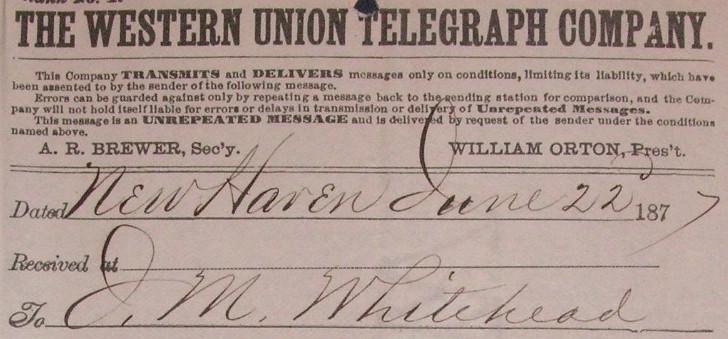 THE WESTERN UNION TELEGRAPH COMPANY.
This Company TRANSMITS and DELIVERS messages only on conditions, limiting its liability, which have
been assented to by the sender of the following message.
Errors can be guarded against only by repeating a message back to the sending station for comparison, and the Com-
pany will not hold itself liable for errors or delays in transmission or delivery of Unrepeated Messages.
This message is an UNREPEATED MESSAGE and is delivered by request of the sender under the conditions
named above.
A. R. BREWER, Sec'y. WILLIAM ORTON, Pres't.
Dated New Haven June 22 1877
Received at
To J. M. Whitehead